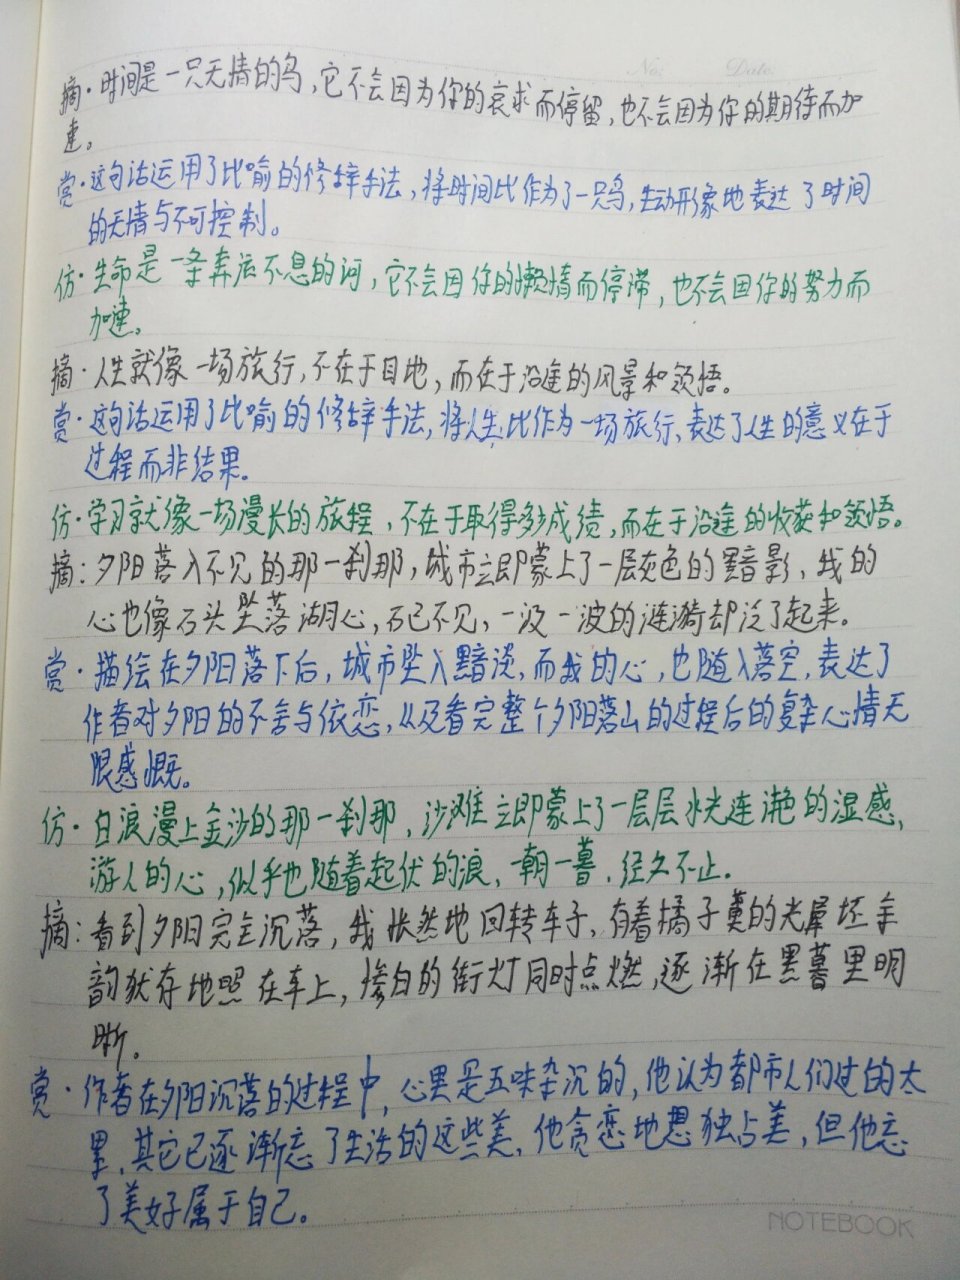 No:   Date:
摘·时间是一只无情的鸟,它不会因为你的哀求而停留,也不会因为你的期待而加
速。
赏·这句话运用了比喻的修辞手法,将时间比作为了一只鸟,生动形象地表达了时间
的无情与不可控制。
仿·生命是一条奔流不息的河,它不会因你的懒惰而停滞,也不会因你的努力而
加速。
摘·人生就像一场旅行,不在于目地,而在于沿途的风景和领悟。
赏·这句话运用了比喻的修辞手法,将人生比作为一场旅行、表达了人生的意义在于
过程而非结果。
仿·学习就像一场漫长的旅程,不在于取得多少成绩,而在于沿途的收获和领悟。
摘:夕阳落入不见的那一刹那,城市立即蒙上了一层灰色的黯影、我的
心也像石头坠落湖心,石已不见,一波一波的涟漪却泛了起来。
赏·描绘在夕阳落下后,城市坠入黯淡,而我的心,也随入落空,表达了
作者对夕阳的不舍与依恋,以及看完整个夕阳落山的过程后的复杂心情无
限感慨。
仿·白浪漫上金沙的那一刹那,沙滩立即蒙上了一层层水光连滟的湿感,
游人的心,似乎也随着起伏的浪、一朝一暮、经久不止.
摘:看到夕阳完全沉落,我怅然地回转车子、有着橘子 的光 
韵犹存地照在车上,惨白的街灯同时点燃,逐渐在黑暮里明
晰。
赏·作者在夕阳沉落的过程中,心里是五味杂沉的,他认为都市人们过的太
累,其它已逐渐忘了生活的这些美,他贪恋地想独占美,但他忘
了美好属于自己。
NOTEBOOK